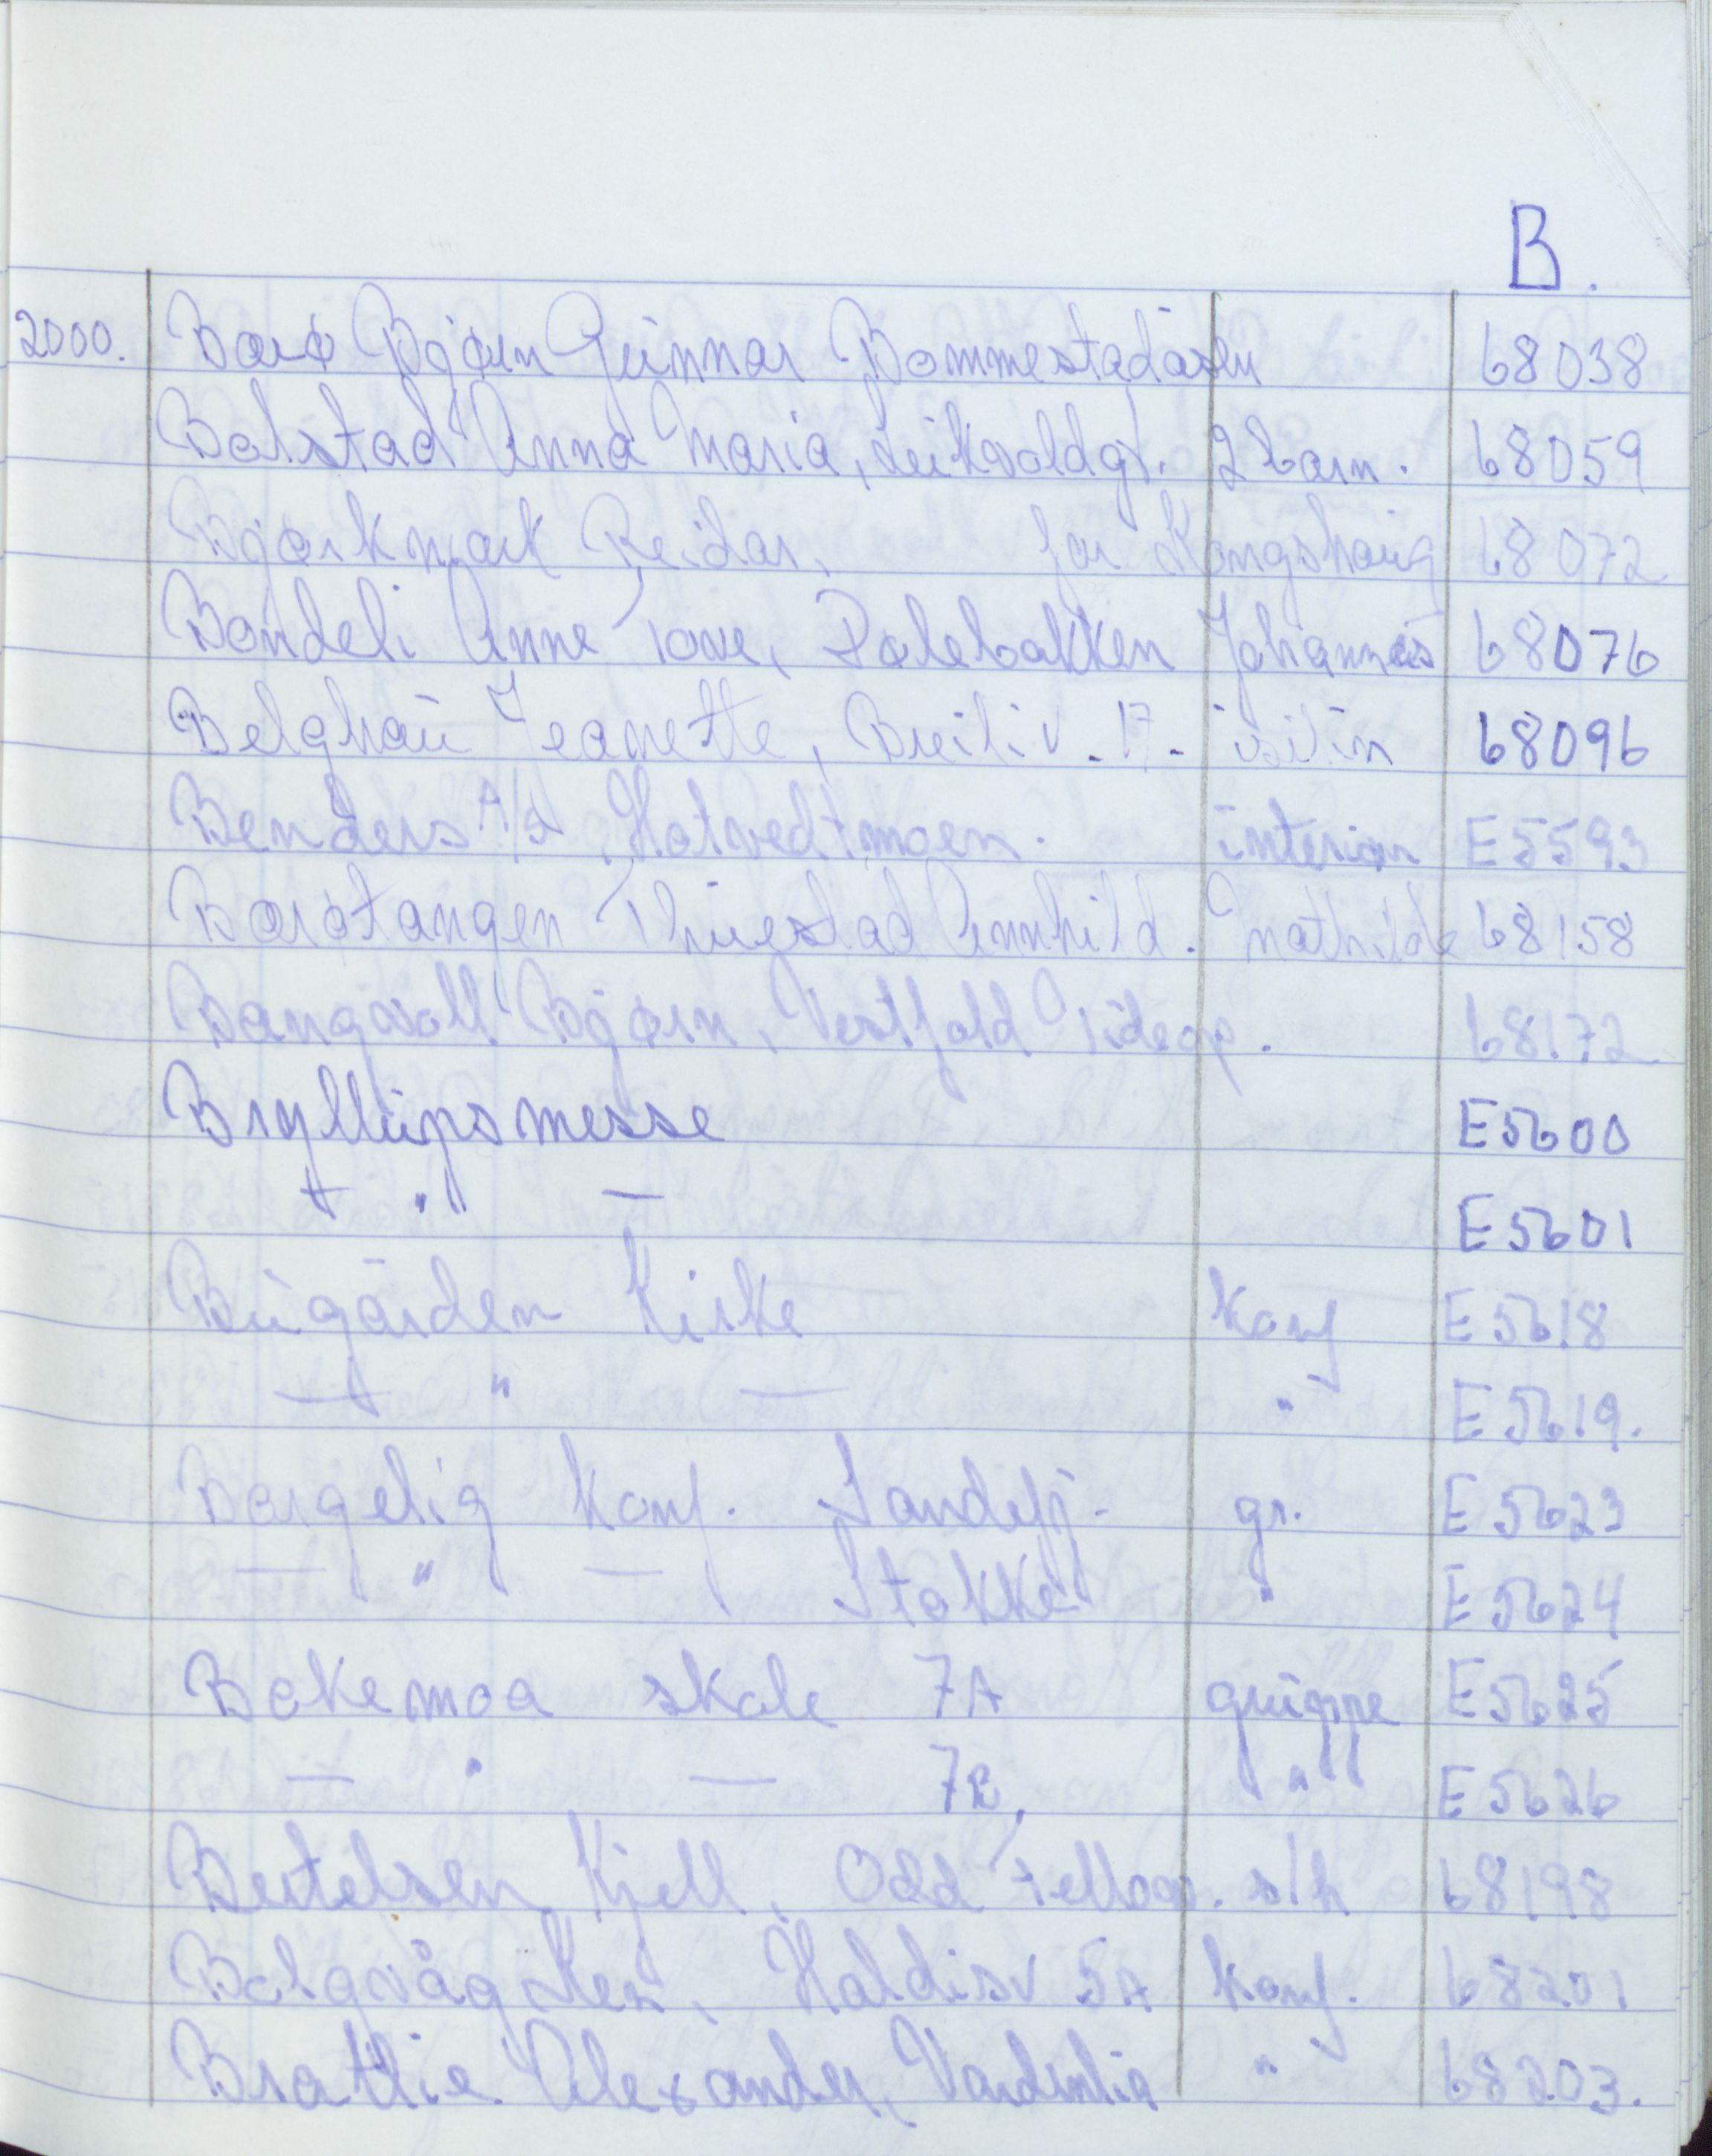 B.
2000. Barø Bjørn Gunnar Bommestadåsen 68038
Bolstad Anna Maria, Leikvoldgt. 2 barn. 68059
Bjørkmark Reidar, for Kongshaug 68072
Bondeli Anne Tove, Dølebakken Johannes 68076
Belghaü Jeanette, Breiliv. 17 - iselin 68096
Benders A/S Hotvedtmoen. interiør E5593
Barøtangen Thuestad Annhild. Mathilde 68158
Bangsoll Bjørn, Vestfold 68172
Bryllüpsmesse E5600
— " — E5601
Bügården Kirke Konf E5618
— " — " E5619.
Borgelig Konf. Sandefj- gr. E5623
— " — Stokke " E5624
Bøkemoa skole 7A grüppe E5625
— " — 7B, " E5626
Bertelsen Kjell, Odd Fellow. s/h 68198
Bolgvåg, Haldisv 5A Konf. 68201
Brathie Alexander, " 68203.